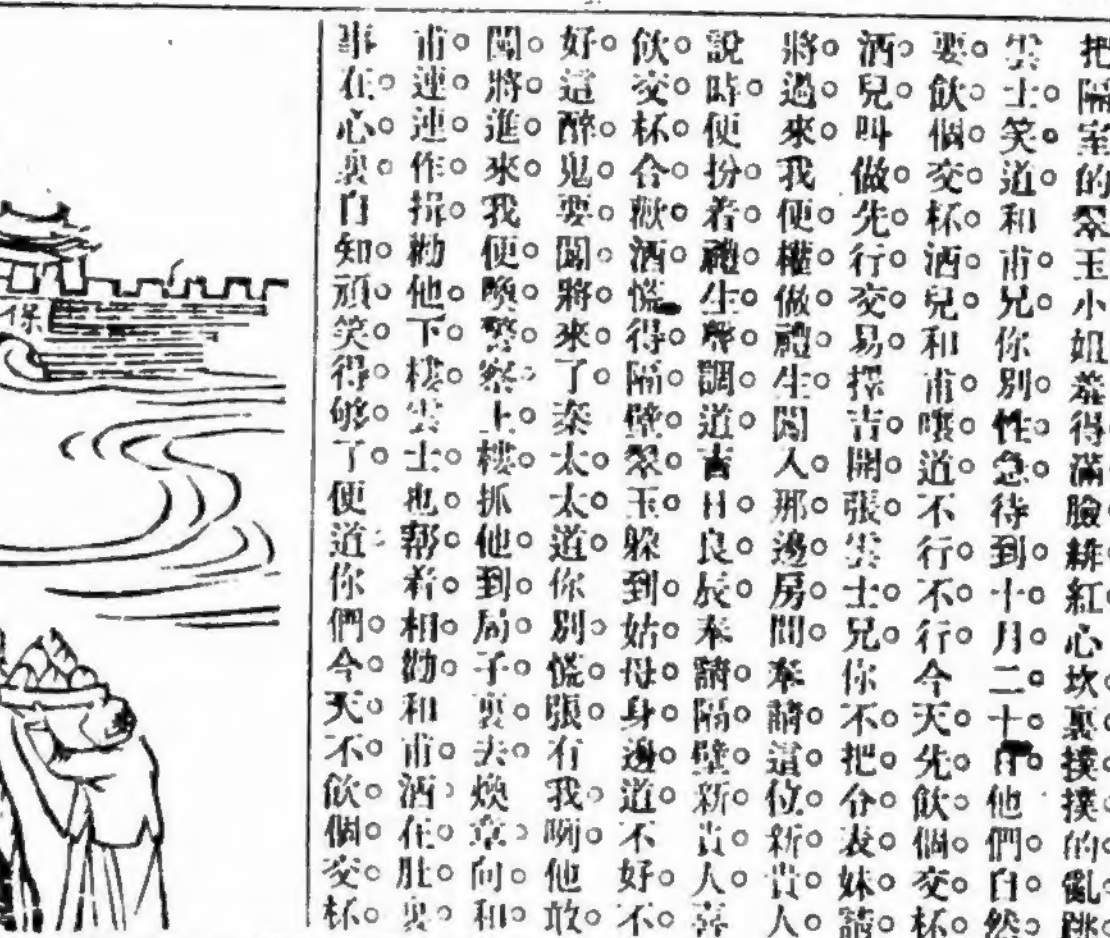 把隔室的翠玉小姐羞得滿臉緋紅心坎裏撲撲的亂跳
雲士笑道和甫兄你別性急待到十月二十日他們自然
要飲個交杯酒兒和甫嚷道不行不行今天先飲個交杯
酒兒叫做先行交易擇吉開張雲士兄你不把令表妹請
將過來我便權做禮生閙人那邊房間奉請這位新貴人
說時便扮着禮生聲調道吉日良辰奉請隔壁新貴人喜
飲交杯合歡酒慌得隔壁翠玉躲到姑母身邊道不好不
好這醉鬼要閙將來了秦太太道你別慌張有我咧他敢
閙將進來我便喚警察上樓抓他到局子裏去煥章向和
甫連連作揖勸他下樓雲士也帮着相勸和甫酒在肚裏
事在心裏自知頑笑得够了便道你們今天不飲個交杯
保